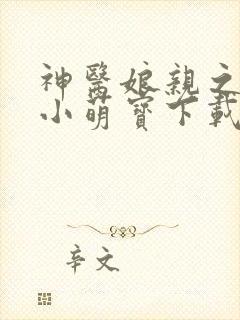 神醫娘親之
小萌寶下載
辛文